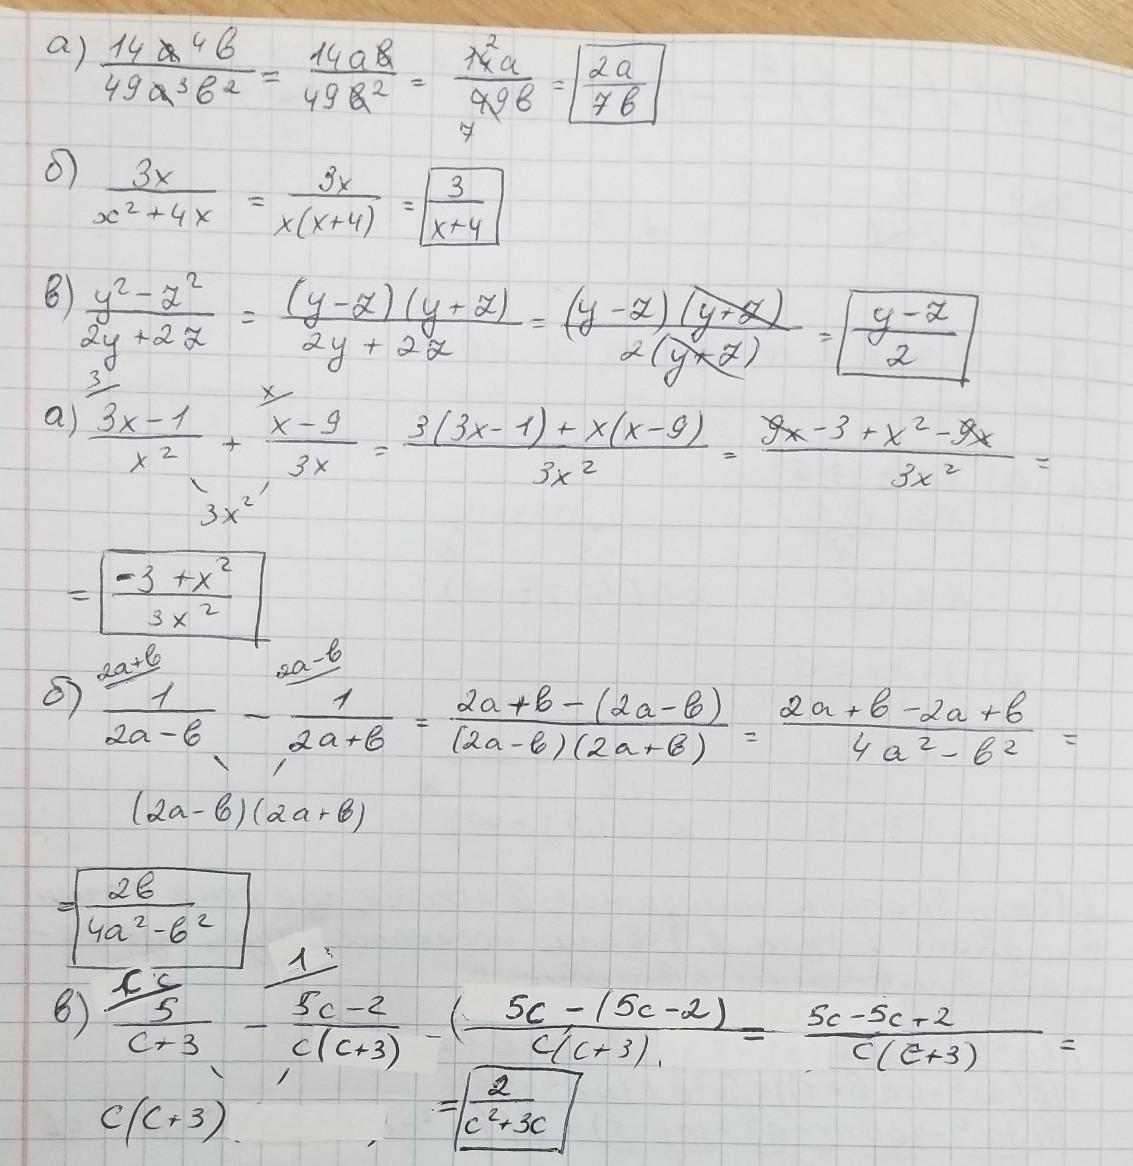 а) 14a⁴b/49a³b² = 14ab/49b² = 14²a/49₇b = 2a/7b
б) 3x/x²+4x = 3x/x(x+4) = 3/x+4
в) y²-z²/2y+2z = (y-z)(y+z)/2y+2z = (y-z)(y+z)/2(y+z) = y-z/2
3/ x/
а) 3x-1/x² + x-9/3x = 3(3x-1)+x(x-9)/3x² = 9x-3+x²-9x/3x² =
3x²
= -3+x²/3x²
2a+b 2a-b
б) 1/2a-b - 1/2a+b = 2a+b-(2a-b)/(2a-b)(2a+b) = 2a+b-2a+b/4a²-b² =
(2a-b)(2a+b)
= 2b/4a²-b²
c 1
в) 5/c+3 - 5c-2/c(c+3) - ( 5c-(5c-2)/c(c+3) = 5c-5c+2/c(c+3) =
c(c+3)
= 2/c²+3c